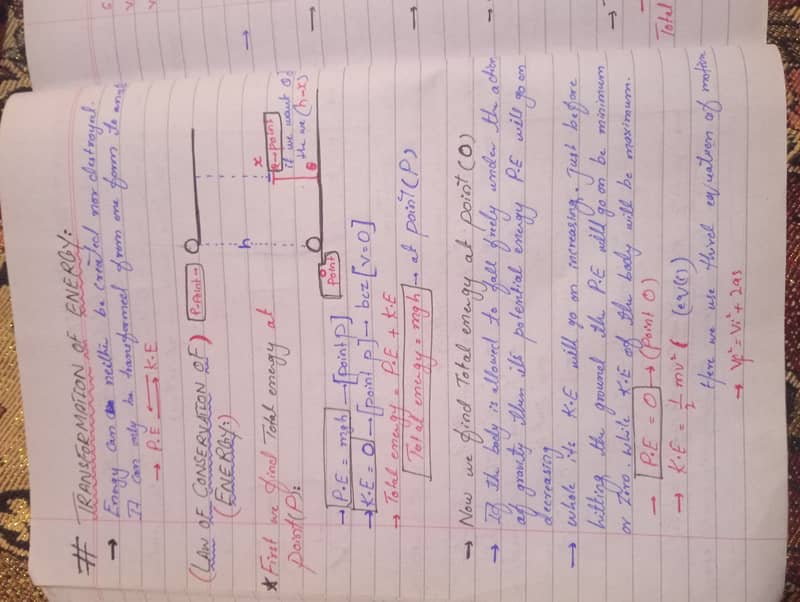 # TRANSFORMATION OF ENERGY:
→ Energy can neither be created nor destroyed.
It can only be transformed from one form to
→ P.E ⇌ K.E
(LAW OF CONSERVATION OF)
(ENERGY:)
P-Point→
h
x
if we want
the we (h-x)
O
Point
★ First we find Total energy at
point(P):
→ P.E = mgh → [Point P]
→ K.E = O → [point P] → bcz [V=O]
→ Total energy = P.E + K.E
Total energy = mgh → at point (P)
→ Now we find Total energy at point (O)
→ If the body is allowed to fall freely under the action
of gravity then its potential energy P.E will go on
decreasing
→ whole its K.E will go on increasing. Just before
hitting the ground the P.E will go on be minimum
or Zero. while K.E of the body will be maximum.
→ P.E = O → (Point O)
→ K.E = 1/2 mv² (eq(1))
Here we use third equation of motion
→ Vf² = Vi² + 2as
Total